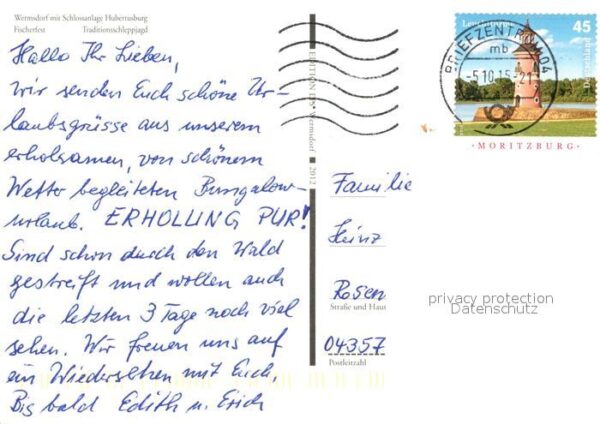 Wermsdorf mit Schlossanlage Hubertusburg
Fischerfest Traditionsschleppjagd
Hallo Ihr Lieben,
wir senden Euch schöne Ur-
laubsgrüsse aus unserem
erholsamen, von schönem
Wetter begleiteten Bungalow-
urlaub. ERHOLUNG PUR!
Sind schon durch den Wald
gestreift und wollen auch
die letzten 3 Tage noch viel
sehen. Wir freuen uns auf
ein Wiedersehen mit Euch,
Bis bald Edith u. Erich
EDITION Wermsdorf 2012
BRIEFZENTRUM 04
mb
-5.10.15-21
Leuchtturm
45
Deutschland
MORITZBURG
Familie
Heinz
Rosen
Straße und Haus
04357
Postleitzahl
privacy protection
Datenschutz